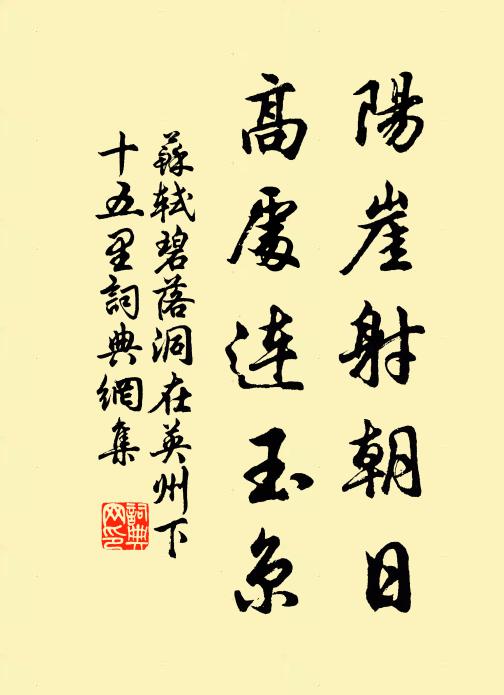 陽崖射朝日
高處連玉京
蘇軾碧落洞在英州下
十五里詞典網集
詞典網印